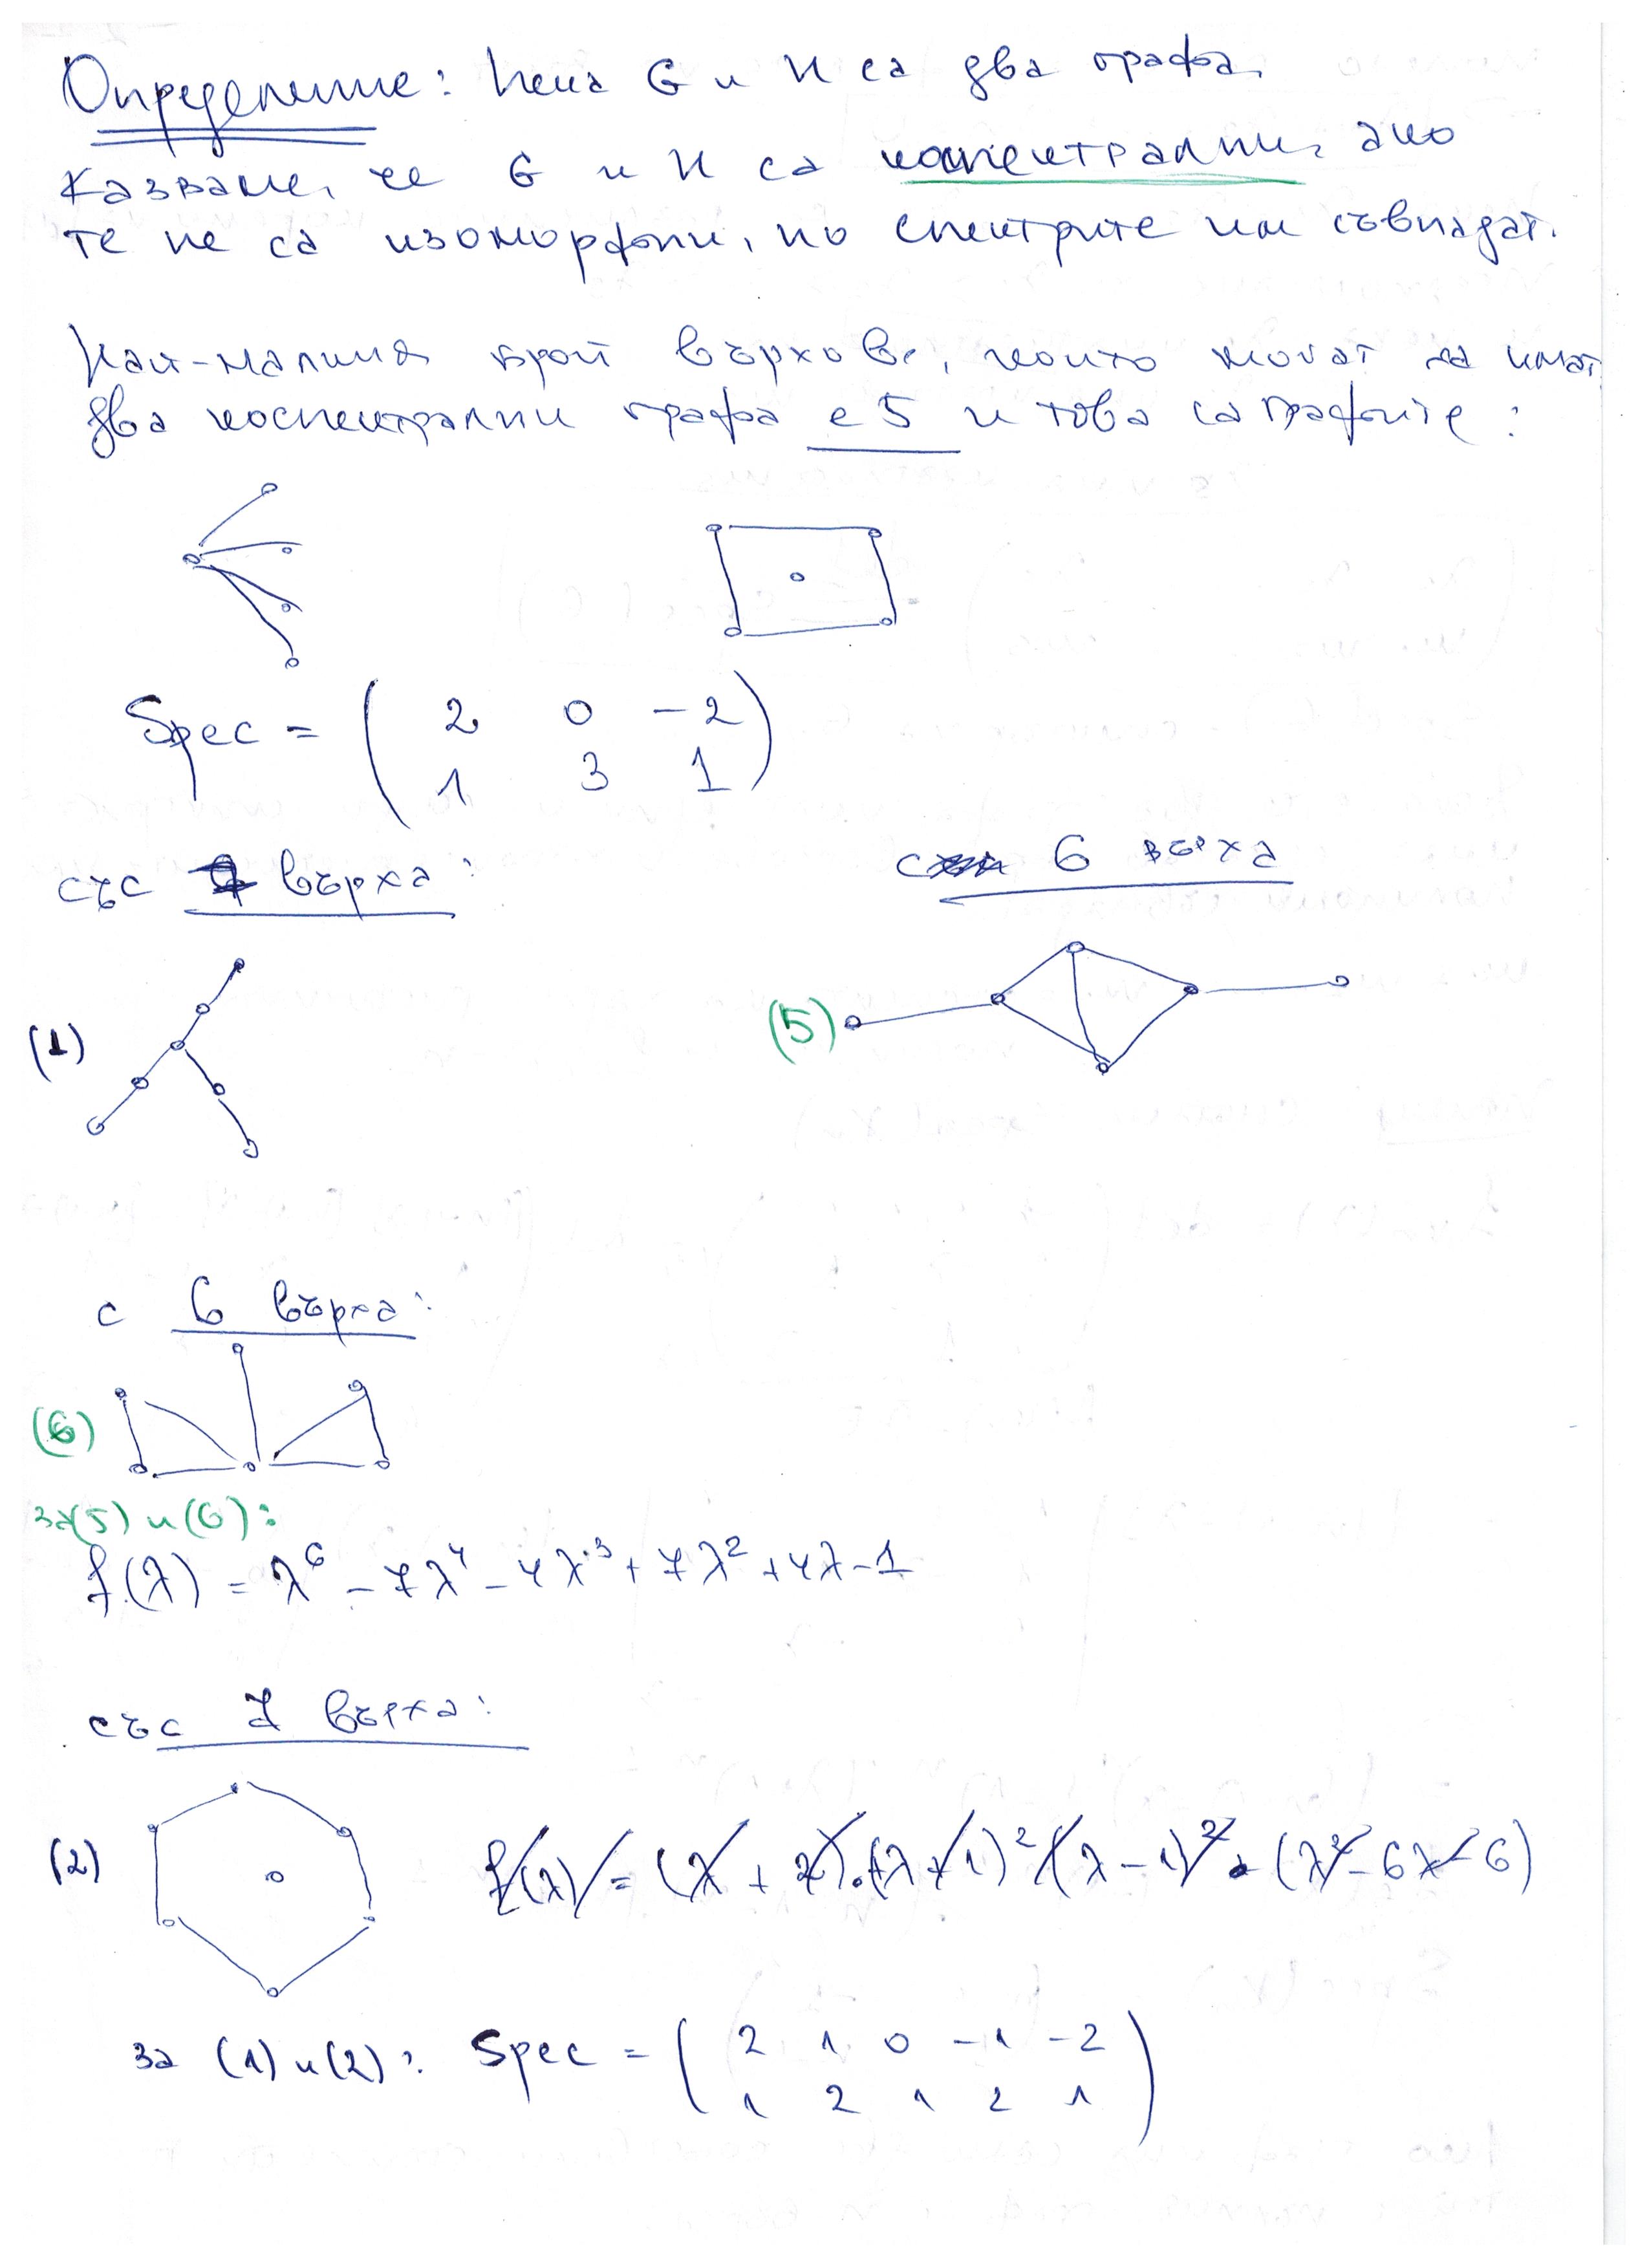 Определение: Нека G и H са два графа.
Казваме, че G и H са коспектрални, ако
те не са изоморфни, но спектрите им съвпадат.
Най-малкия брой върхове, които могат да имат
два коспектрални графа е 5 и това са графите:
Spec = ( 2 0 -2
1 3 1 )
със 7 върха:
6 върха
(1)
(5)
с 6 върха:
(6)
за (5) и (6):
f(λ) = λ⁶ - 7λ⁴ - 4λ³ + 7λ² + 4λ - 1
със 7 върха:
(2) f(λ) = (λ + 2).(λ + 1)²(λ - 1)².(λ² - 6λ - 6)
за (1) и (2): Spec = ( 2 1 0 -1 -2
1 2 1 2 1 )